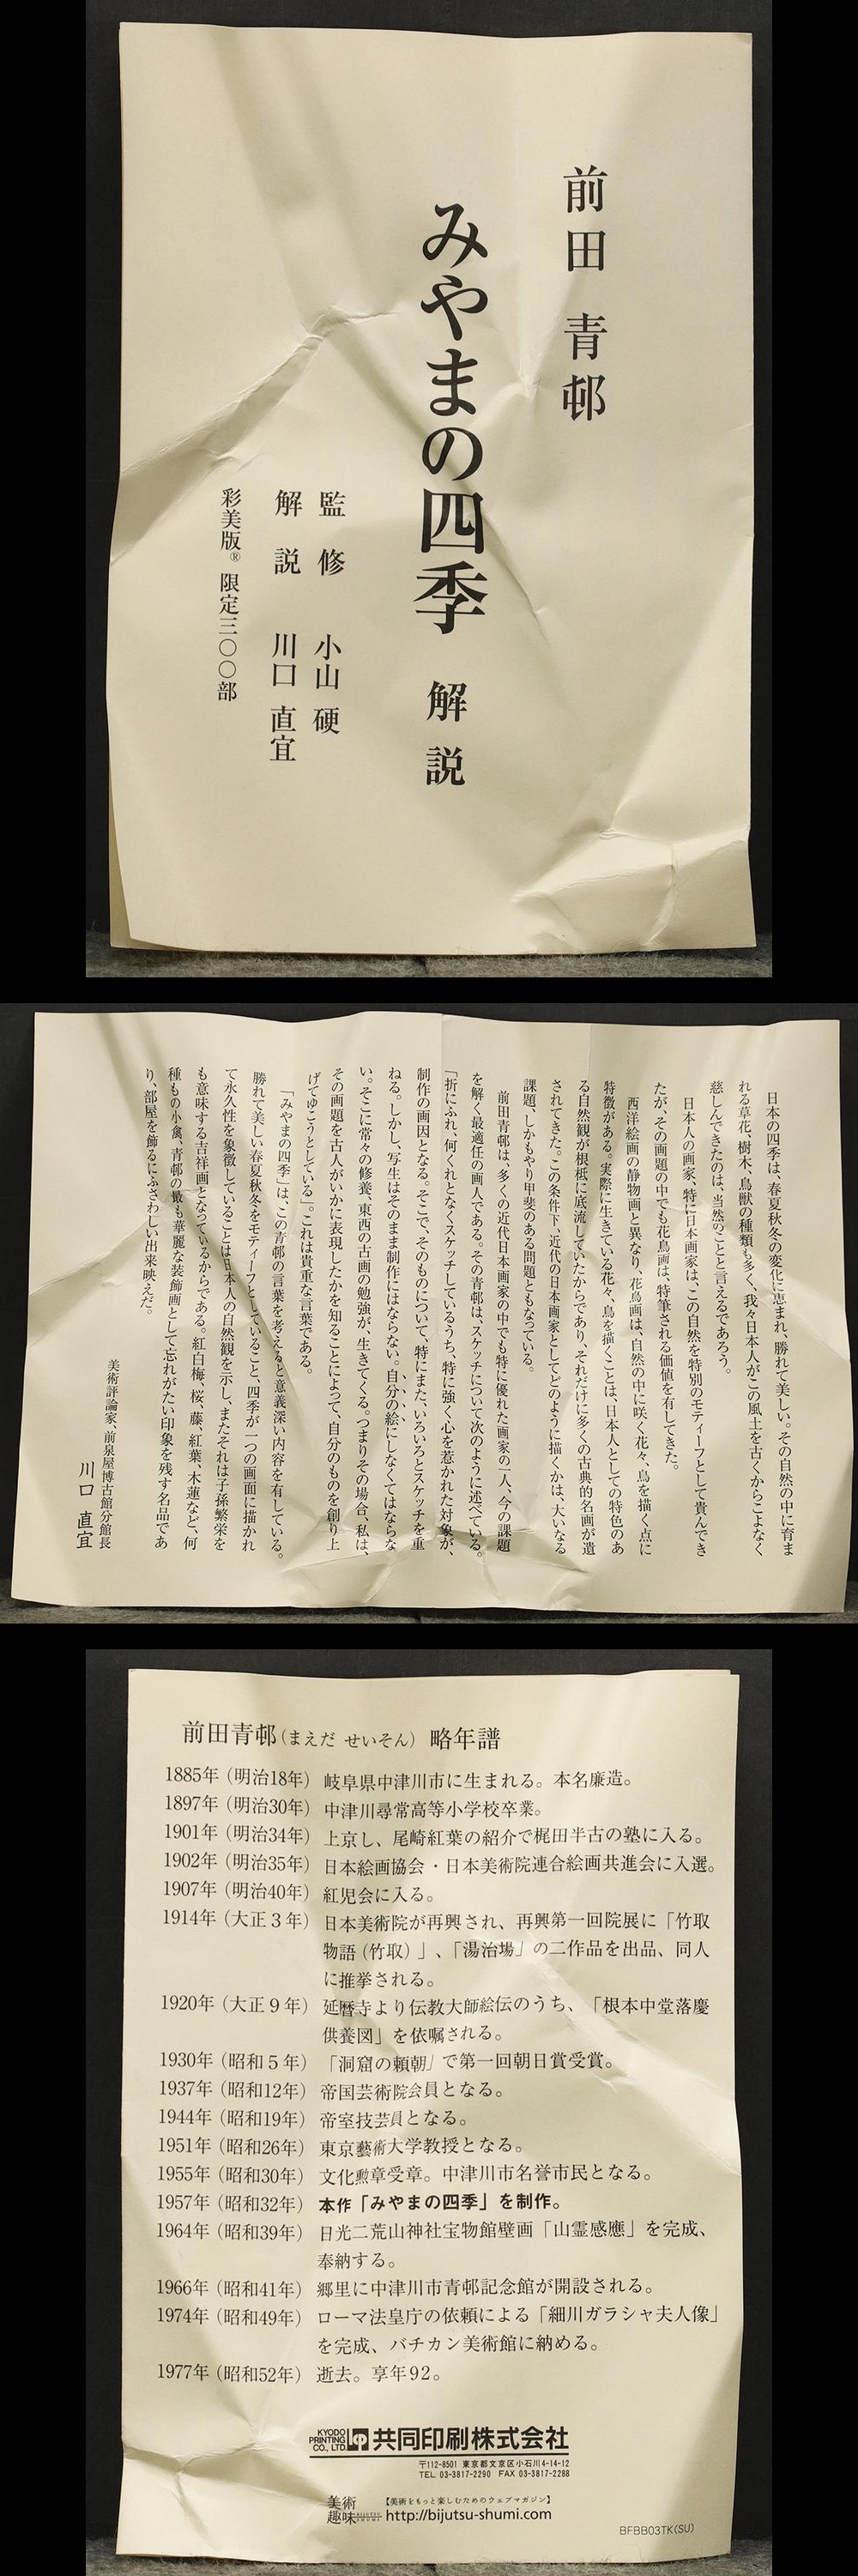 前田 青邨
みやまの四季 解説
監修 小山 硬
解説 川口 直宜
彩美版® 限定三〇〇部
日本の四季は、春夏秋冬の変化に恵まれ、勝れて美しい。その自然の中に育ま
れる草花、樹木、鳥獣の種類も多く、我々日本人がこの風土を古くからこよなく
慈しんできたのは、当然のことと言えるであろう。
日本人の画家、特に日本画家は、この自然を特別のモティーフとして貴んでき
たが、その画題の中でも花鳥画は、特筆される価値を有してきた。
西洋絵画の静物画と異なり、花鳥画は、自然の中に咲く花々、鳥を描く点に
特徴がある。実際に生きている花々、鳥を描くことは、日本人としての特色のあ
る自然観が根柢に底流していたからであり、それだけに多くの古典的名画が遺
されてきた。この条件下、近代の日本画家としてどのように描くかは、大いなる
課題、しかもやり甲斐のある問題ともなっている。
前田青邨は、多くの近代日本画家の中でも特に優れた画家の一人、今の課題
を解く最適任の画人である。その青邨は、スケッチについて次のように述べている。
「折にふれ、何くれとなくスケッチしているうち、特に強く心を惹かれた対象が、
制作の画因となる。そこで、そのものについて、特にまた、いろいろとスケッチを重
ねる。しかし、写生はそのまま制作にはならない。自分の絵にしなくてはならな
い。そこに常々の修養、東西の古画の勉強が、生きてくる。つまりその場合、私は、
その画題を古人がいかに表現したかを知ることによって、自分のものを創り上
げてゆこうとしている」。これは貴重な言葉である。
「みやまの四季」は、この青邨の言葉を考えると意義深い内容を有している。
勝れて美しい春夏秋冬をモティーフとしていること、四季が一つの画面に描かれ
て永久性を象徴していることは日本人の自然観を示し、またそれは子孫繁栄を
も意味する吉祥画となっているからである。紅白梅、桜、藤、紅葉、木蓮など、何
種もの小禽、青邨の最も華麗な装飾画として忘れがたい印象を残す名品であ
り、部屋を飾るにふさわしい出来映えだ。
美術評論家、前泉屋博古館分館長
川口 直宜
前田青邨(まえだ せいそん) 略年譜
1885年(明治18年) 岐阜県中津川市に生まれる。本名廉造。
1897年(明治30年) 中津川尋常高等小学校卒業。
1901年(明治34年) 上京し、尾崎紅葉の紹介で梶田半古の塾に入る。
1902年(明治35年) 日本絵画協会・日本美術院連合絵画共進会に入選。
1907年(明治40年) 紅児会に入る。
1914年(大正3年) 日本美術院が再興され、再興第一回院展に「竹取
物語(竹取)」、「湯治場」の二作品を出品、同人
に推挙される。
1920年(大正9年) 延暦寺より伝教大師絵伝のうち、「根本中堂落慶
供養図」を依嘱される。
1930年(昭和5年) 「洞窟の頼朝」で第一回朝日賞受賞。
1937年(昭和12年) 帝国芸術院会員となる。
1944年(昭和19年) 帝室技芸員となる。
1951年(昭和26年) 東京藝術大学教授となる。
1955年(昭和30年) 文化勲章受章。中津川市名誉市民となる。
1957年(昭和32年) 本作「みやまの四季」を制作。
1964年(昭和39年) 日光二荒山神社宝物館壁画「山霊感應」を完成、
奉納する。
1966年(昭和41年) 郷里に中津川市青邨記念館が開設される。
1974年(昭和49年) ローマ法皇庁の依頼による「細川ガラシャ夫人像」
を完成、バチカン美術館に納める。
1977年(昭和52年) 逝去。享年92。
KYODO PRINTING CO., LTD. 共同印刷株式会社
〒112-8501 東京都文京区小石川4-14-12
TEL 03-3817-2290 FAX 03-3817-2288
美術趣味 BIJUTSU SHUMI 【美術をもっと楽しむためのウェブマガジン】
http://bijutsu-shumi.com
BFBB03TK(SU)